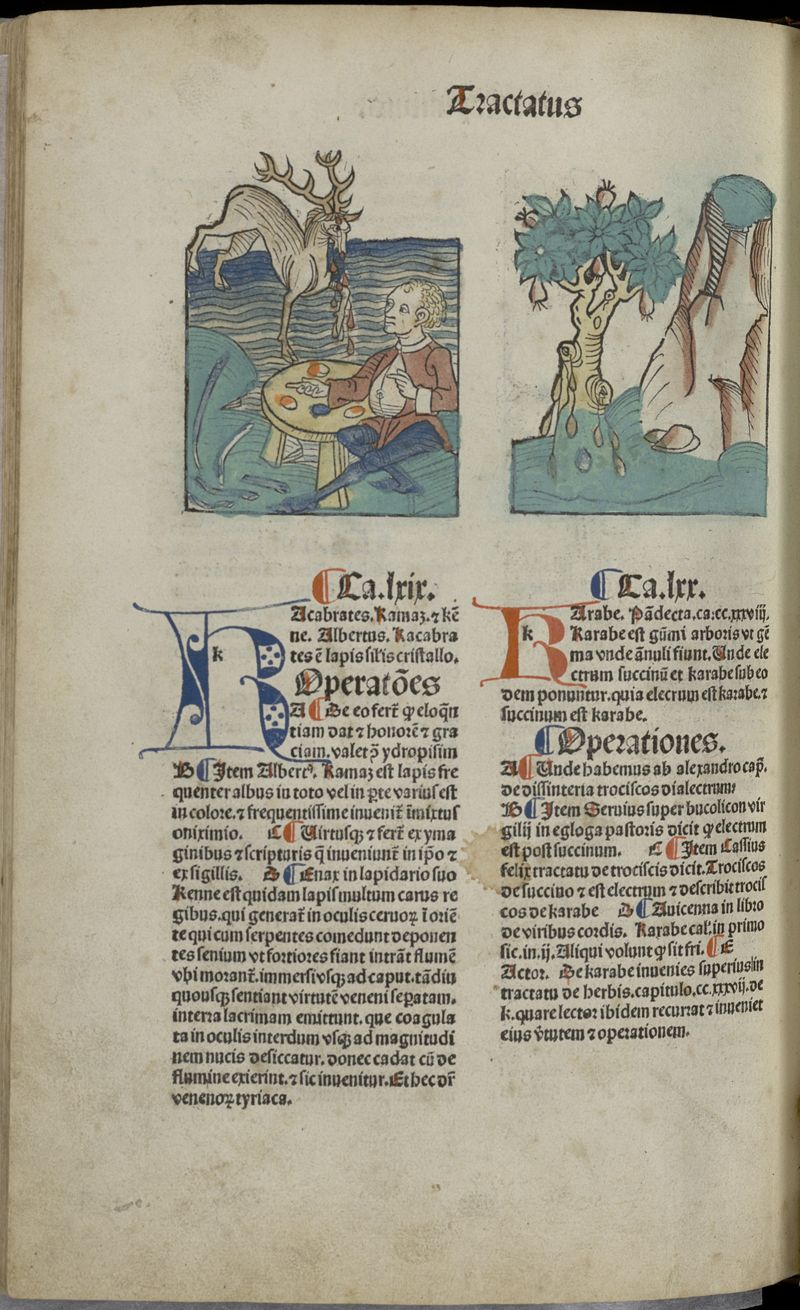 Tractatus
¶Ca.lxix.
k
KAcabrates.Kamaz.⁊ kē
ne. Albertus. Kacabra
tes ē lapis sil'is cristallo.
Operatōes
A ¶De eo fert̄ ꝙ eloq̄n
tiam dat ⁊ honorē ⁊ gra
ciam.valet ↄ̄ ydropisim
B ¶Item Albert⁹. Kamaz est lapis fre
quenter albus in toto vel in ꝑte varius est
in colore.⁊ frequentissime inuenit̄ īmixtus
oniximio. C ¶Uirtusqꝫ ⁊ fert̄ ex yma
ginibus ⁊ scripturis q̄ inueniunt̄ in ip̄o ⁊
ex sigillis. D ¶Enax in lapidario suo
Kenne est quidam lapis multum carus re
gibus.qui generat̄ in oculis ceruoꝝ ī oriē
te qui cum serpentes comedunt deponen
tes senium vt fortiores fiant intrāt flumē
vbi morant̄.immersi vsqꝫ ad caput.tādiu
quousqꝫ sentiant virtutē veneni seꝑatam.
interra lacrimam emittunt. que coagula
ta in oculis interdum vsqꝫ ad magnitudi
nem nucis desiccatur. donec cadat cū de
flumine exierint.⁊ sic inuenitur. Et hec dr̄
venenoꝝ tyriaca.
¶Ca.lxx.
k
KArabe. Pādecta.ca.cc.xxxviij.
Karabe est gūmi arboris vt gē
ma vnde ānuli fiunt. Unde ele
ctrum succinū et karabe sub eo
dem ponuntur.quia elecrum est karabe.⁊
succinum est karabe.
¶Operationes.
A ¶Unde habemus ab alexandro cap̄.
de dissinteria trociscos dialectrum
B ¶Item Seruius super bucolicon vir
gilij in egloga pastoris dicit ꝙ electrum
est post succinum. C ¶Item Cassius
felix tractatu de trociscis dicit. Trociscos
de succino ⁊ est electrum ⁊ describit trocis
cos de karabe D ¶Auicenna in libro
de viribus cordis. Karabe cal'.in primo
sic.in.ij. Aliqui volunt ꝙ sit fri. ¶E
Actor. De karabe inuenies superius in
tractatu de herbis.capitulo.cc.xxxvij.de
k.quare lector ibidem recurrat ⁊ inueniet
eius v̄tutem ⁊ operationem.